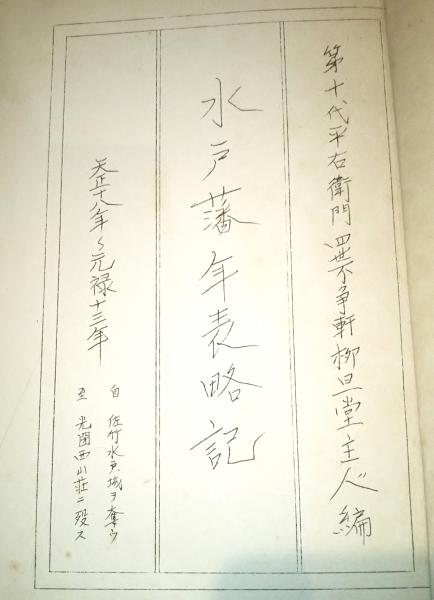 第十代平右衛門 四世不争軒柳旦堂主人編
水戸藩年表略記
天正十八年〜元禄十三年
自 佐竹水戸城ヲ奪ウ
至 光圀西山荘ニ歿ス